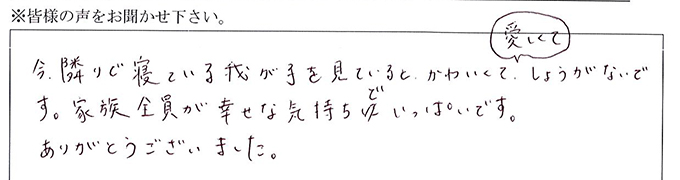 ※皆様の声をお聞かせ下さい。
愛しくて
今、隣りで寝ている我が子を見ていると、かわいくて、しょうがないで
す。家族全員が幸せな気持ちでいっぱいです。
ありがとうございました。